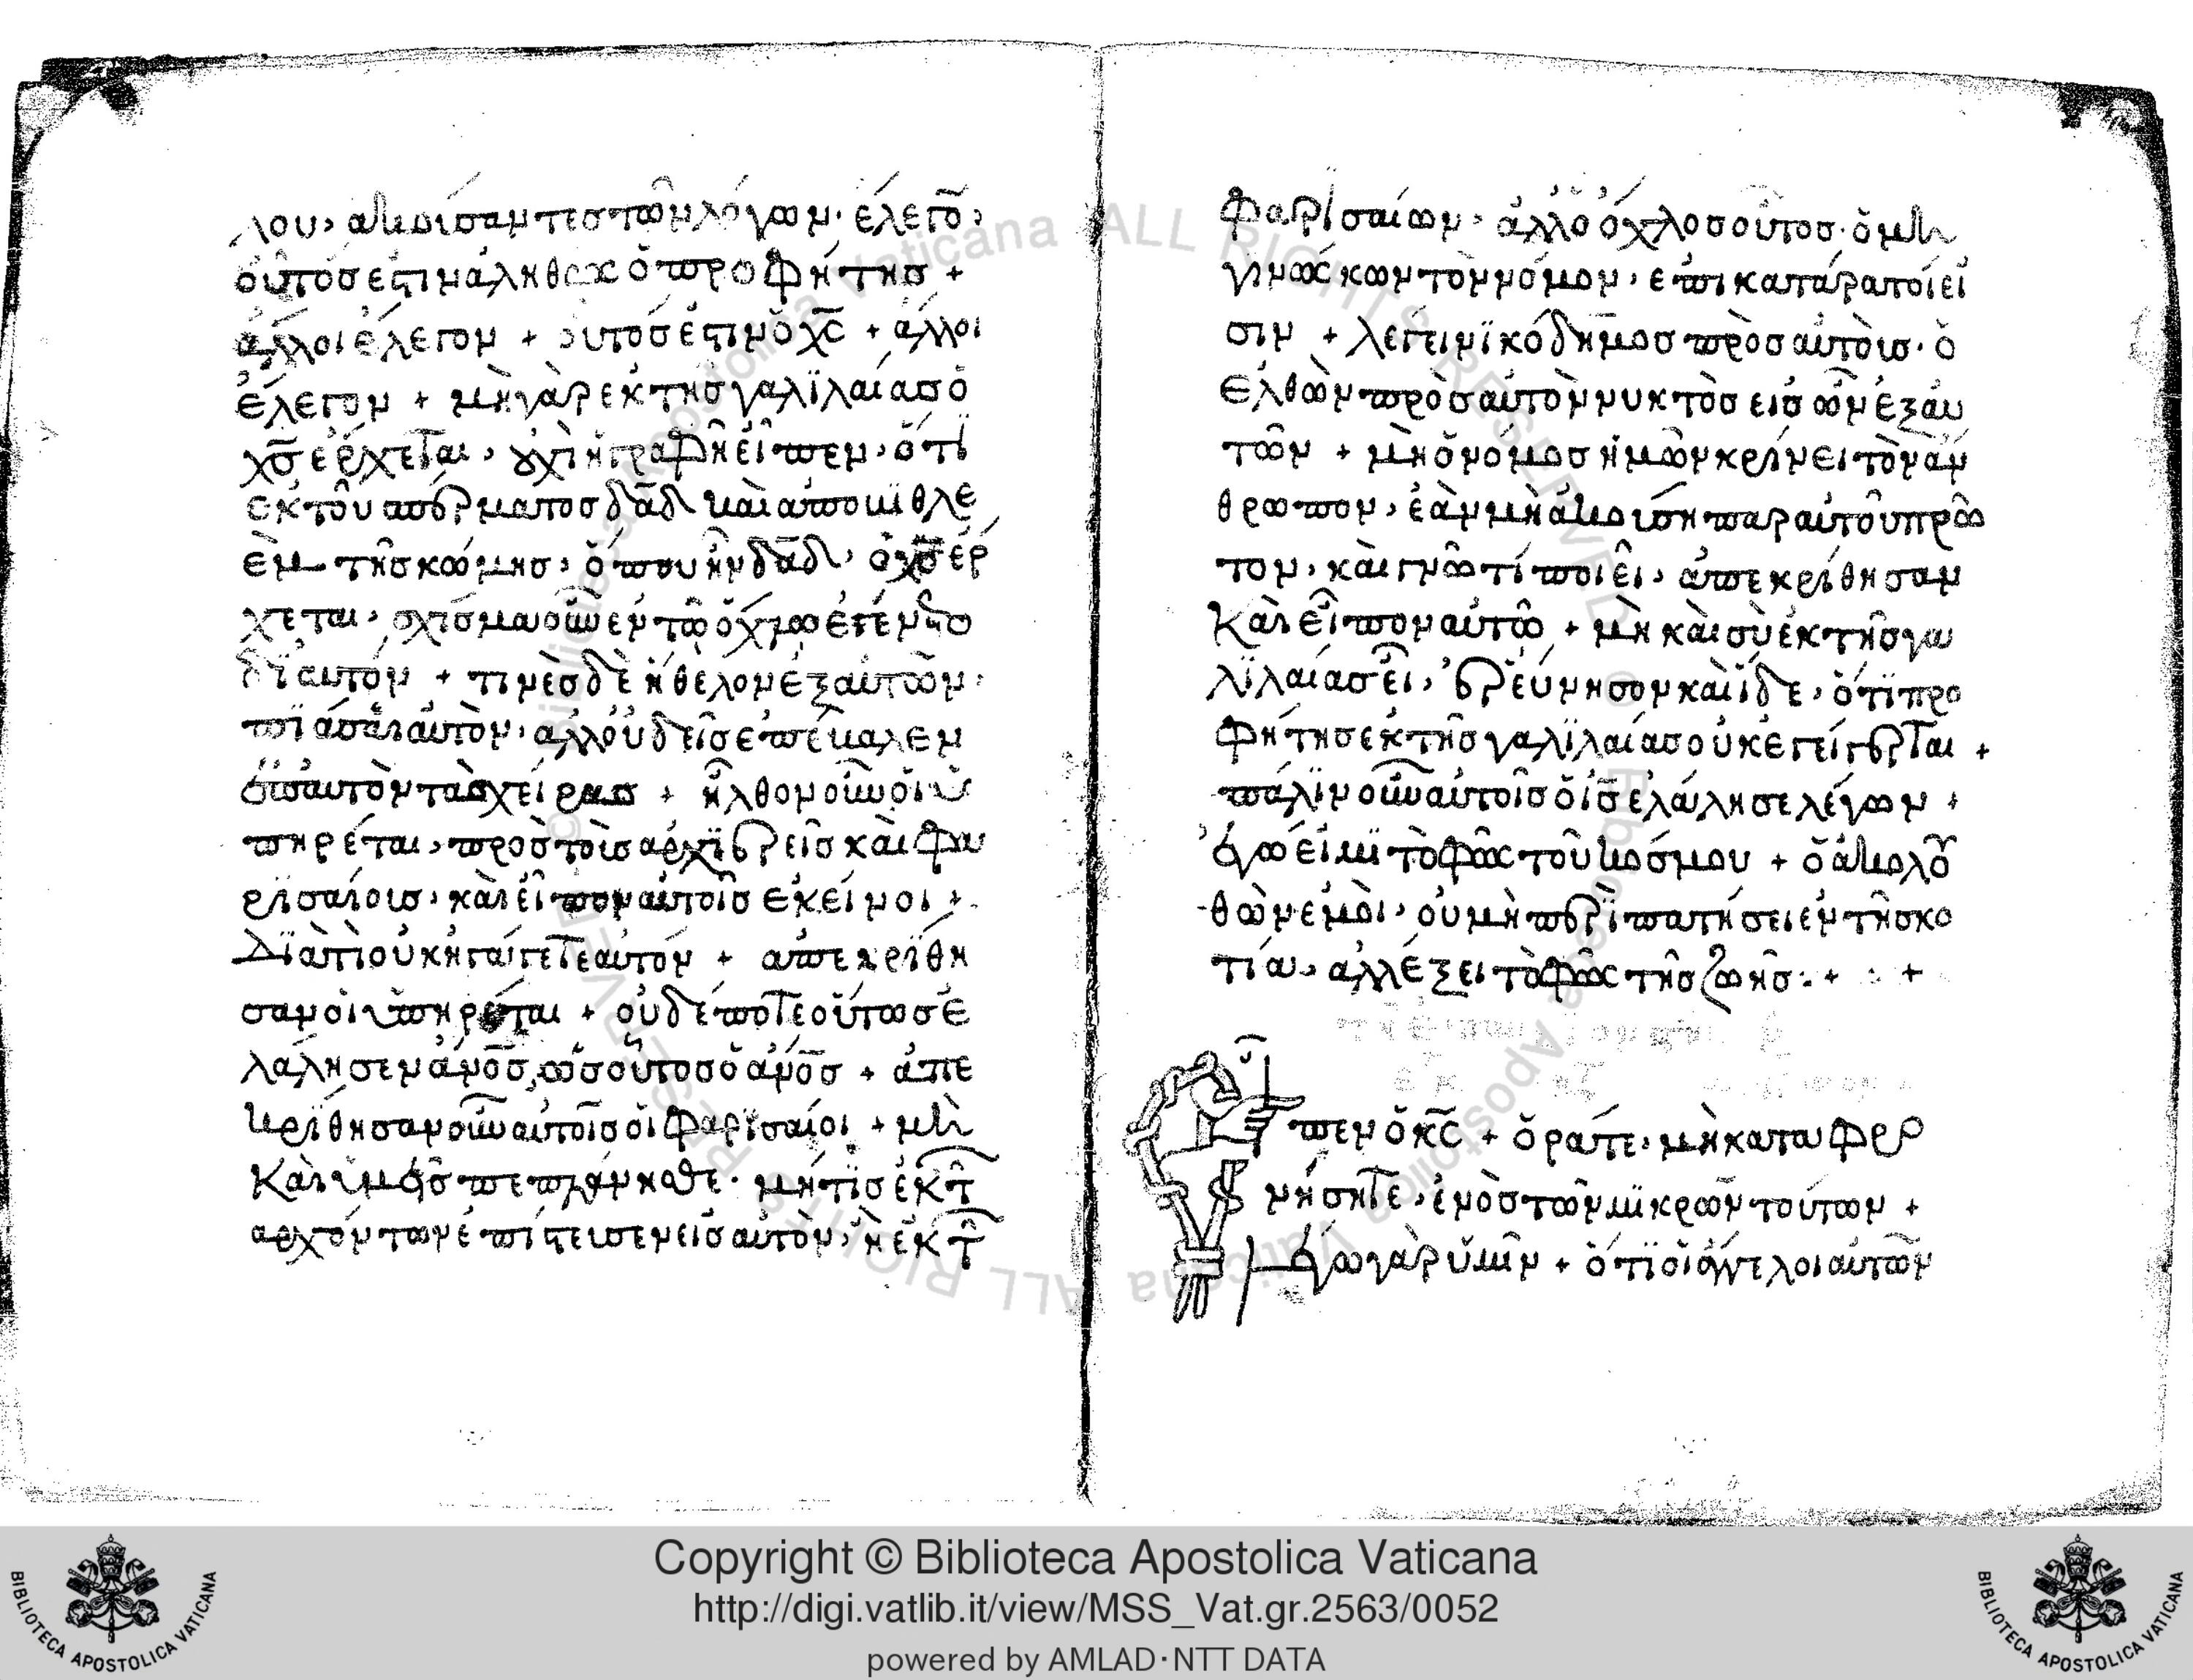 λου, ακούσαντες τῶν λόγων· ἔλεγο̄,
οὗτός ἐστιν ἀληθῶς ὁ προφήτης +
ἄλλοι ἔλεγον + οὗτός ἐστιν ὁ χ̄ς + άλλοι
ἔλεγον + μὴ γὰρ ἐκ τῆς γαλϊλαίας ὁ
χ̄ς ἔρχεται, οὐχὶ ἡ γραφὴ εἶπεν, ὅτϊ
ἐκ τοῦ σπέρματος δ̄αδ καὶ απο βιθλε
ὲμ τῆς κώμης, ὅπου ἦν δ̄αδ, ὁ χ̄ς ἔρ
χεται, σχίσμα οὖν ἐν τῶ ὄχλω ἐγένετο
δϊ αυτόν + τινὲς δὲ ἤθελον ἐξ αυτῶν·
πϊάσαι αὐτὸν, αλλ οὐδεὶς ἐπέβαλεν
ἐπ αυτὸν τὰς χείρας + ἦλθον οὖν ὁι ὑ
πηρέται, προς τοὺς αρχϊερεῖς καὶ φα
ρϊσαίους, καὶ εἶπον αὐτοῖς ἐκείνοι +
Δϊατὶ οὐκ ἠγάγετε αυτόν + απεκρίθη
σαν ὁι ὑπηρέται + οὐδέποτε οὕτως ἐ
λάλησεν ἄν̄ος, ὡς οὗτος ὁ ἄν̄ος + ἀπε
κρίθησαν οὖν αὐτοῖς ὁι φαρϊσαίοι + μὴ
Καὶ ὑμεῖς πεπλάνησθε· μήτϊς ἐκ τ̄
αρχόντων ἐπίστευσεν εις αυτὸν, ἢ ἐκ τ̄
Φαρϊσαίων, ἀλλ ὁ ὄχλος οὗτος· ὁ μὴ
γινώσκων τὸν νόμον, επικατάρατοί εἰ
σιν + λέγει νϊκόδημος πρὸς αὐτοὺς· ὁ
ἐλθὼν πρὸς αὐτὸν νυκτὸς εἱς ὢν ἐξ αυ
τῶν + μὴ ὁ νόμος ἡμῶν κρίνει τὸν ἄν
θρωπον, ἐὰν μὴ ἀκούση παρ αὐτοῦ πρῶ
τον, καὶ γνῶ τί ποιεῖ, ἀπεκρίθησαν
Καὶ εἶπον αὐτῶ + μὴ καὶ σὺ ἐκ τῆς γα
λϊλαίας εἶ, ἐρεύνησον καὶ ἴδε, ὅτϊ προ
φήτης ἐκ τῆς γαλϊλαίας οὐκ εγείγερται +
πάλϊν οὖν αὐτοῖς ὁ ῑς ελάλησε λέγων +
ἐγώ εἰμϊ τὸ φῶς τοῦ κόσμου + ὁ ἀκολου
θῶν ἐμὸι, ου μὴ περϊπατήσει ἐν τῆ σκο
τία, αλλ ἕξει τὸ φῶς τῆς ζωῆς : + : +
πεν ὁ κ̄ς + ὁρᾶτε, μὴ καταφρο
νήσητε, ἑνὸς τῶν μϊκρῶν τούτων +
λέγω γὰρ ὑμῖν + ὅτϊ ὁι άγγελοι αὐτῶν
Copyright © Biblioteca Apostolica Vaticana
http://digi.vatlib.it/view/MSS_Vat.gr.2563/0052
powered by AMLAD·NTT DATA
BIBLIOTECA APOSTOLICA VATICANA
BIBLIOTECA APOSTOLICA VATICANA